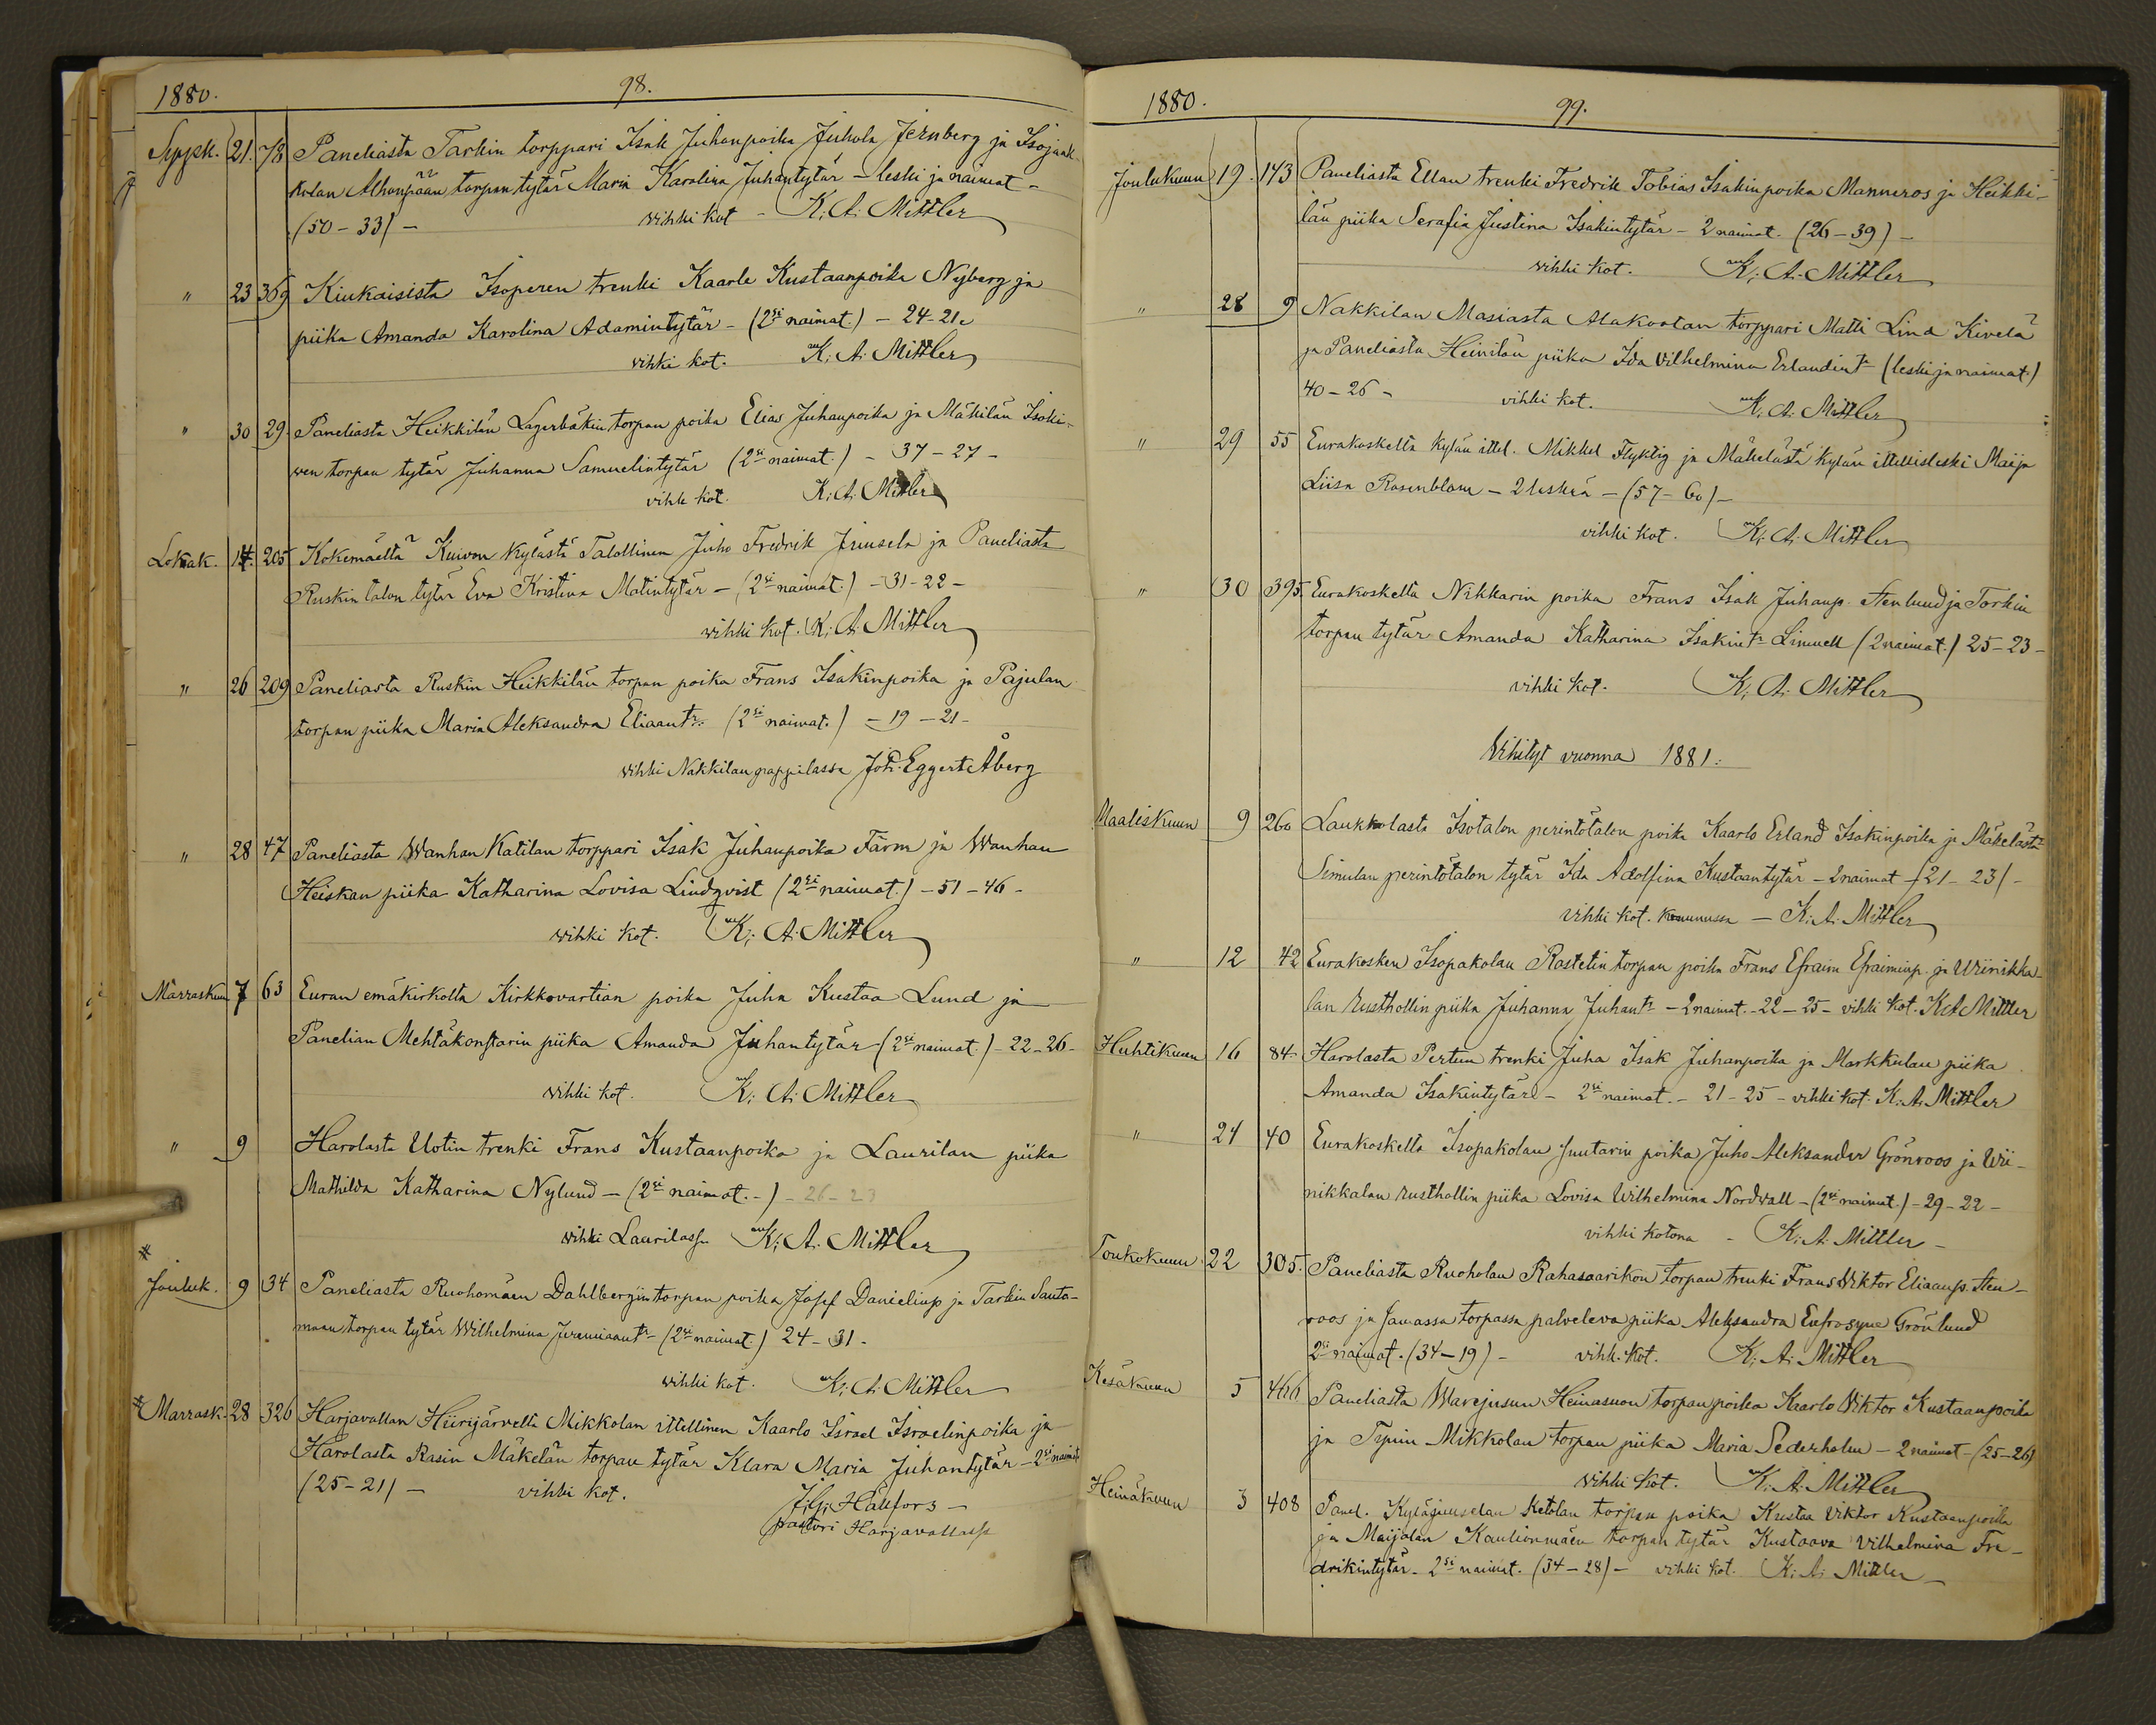 1880.
98.
Syysk. 21. 78 Paneliasta Tarkin torppari Isak Juhanpoika Juhola Jernberg ja Isojaak-
kolan Alhonpään torpan tytär Maria Karolina Juhantytär – leski ja naimat –
(50 – 33) – vihki kot – K. A. Mittler
" 23 369 Kiukaisista Isoperen trenki Kaarle Kustaanpoika Nyberg ja
piika Amanda Karolina Adamintytär – (2si naimat.) – 24 – 21.
vihki kot. K. A. Mittler
" 30 29. Paneliasta Heikkilän Lagerbäkin torpan poika Elias Juhanpoika ja Mäkilän Isoki-
wen torpan tytär Juhanna Samuelintytär (2si naimat.) – 37 – 27 –
vihki kot. K. A. Mittler
Lokak. 14. 205 Kokemäeltä Kuivon kylästä Talollinen Juho Fredrik Juusela ja Paneliasta
Ruskin talon tytär Eva Kristiina Matintytär – (2si naimat.) – 31 – 22 –
vihki kot. K. A. Mittler
" 26 209 Paneliasta Ruskin Heikkilän torpan poika Frans Isakinpoika ja Pajulan
torpan piika Maria Aleksandra Eliaantr. (2si naimat.) – 19 – 21 –
vihki Nakkilan pappilassa Joh. Eggert Åberg
" 28 47 Paneliasta Wanhan Katilan torppari Isak Juhanpoika Färm ja Wanhan
Heiskan piika Katharina Lovisa Lindqvist (2si naimat.) – 51 – 46 –
vihki kot. K. A. Mittler
Marraskuun 7 63 Euran emäkirkolta Kirkkovartian poika Juha Kustaa Lund ja
Panelian Mehtäkonstarin piika Amanda Juhantytär – (2si naimat.) – 22 – 26 –
vihki kot. K. A. Mittler
" 9 Harolasta Uotin trenki Frans Kustaanpoika ja Laurilan piika
Mathilda Katharina Nylund – (2si naimat. –) – 26 – 23
vihki Laurilassa K. A. Mittler
Jouluk. 9 34 Paneliasta Ruohomäen Dahlbergin torpan poika Josef Danielinp ja Tarkin Santa-
maan torpan tytär Wilhelmina Jeremiaantr – (2si naimat.) 24 – 31 –
vihki kot. K. A. Mittler
Marrask. 28 326 Harjavallan Hiirijärveltä Mikkolan ittellinen Kaarlo Israel Israelinpoika ja
Harolasta Rasin Mäkelän torpan tytär Klara Maria Juhantytär – 2si naimat
(25 – 21) – vihki kot. J. G. Hällfors –
pastori Harjavallassa
1880.
99.
Joulukuun 19. 143 Paneliasta Ellan trenki Fredrik Tobias Isakinpoika Manneros ja Heikki-
län piika Serafia Justina Isakintytär – 2 naimat. (26 – 39) –
vihki kot. K. A. Mittler
" 28 9 Nakkilan Masiasta Alakootan torppari Matti Lind Kivelä
ja Paneliasta Heinilän piika Ida Vilhelmina Erlandintr (leski ja naimat.)
40 – 26 – vihki kot. K. A. Mittler
" 29 55 Eurakoskelta kylän ittel. Mikkel Flyktig ja Mäkelästä kylän ittellisleski Maija
Liisa Rosenblom – 2 leskeä – (57 – 60) –
vihki kot. K. A. Mittler
" 30 395 Eurakoskelta Nikkarin poika Frans Isak Juhanp. Stenlund ja Torkin
torpan tytär Amanda Katharina Isakintr Linnell (2 naimat.) 25 – 23 –
vihki kot. K. A. Mittler
Vihityt vuonna 1881.
Maaliskuun 9 260 Laukkolasta Isotalon perintötalon poika Kaarlo Erland Isakinpoika ja Mäkelästä
Simulan perintötalon tytär Ida Adolfina Kustaantytär – 2 naimat – (21 – 23) –
vihki kot. – K. A. Mittler
" 12 42 Eurakosken Isopakolan Rostetin torpan poika Frans Efraim Efraiminp. ja Wiinikka-
lan rusthollin piika Juhanna Juhantr – 2 naimat. – 22 – 25 – vihki kot. K. A. Mittler
Huhtikuun 16 84. Harolasta Pertun trenki Juha Isak Juhanpoika ja Markkulan piika
Amanda Isakintytär – 2si naimat. – 21 – 25 – vihki kot. K. A. Mittler
" 24 40 Eurakoskelta Isopakolan suutarin poika Juho Aleksander Grönroos ja Wii-
nikkalan rusthollin piika Lovisa Wilhelmina Nordwall – (2si naimat.) – 29 – 22 –
vihki kotona – K. A. Mittler –
Toukokuun 22 305. Paneliasta Ruoholan Rahasaarikon torpan trenki Frans Wiktor Eliaanp. Sten-
roos ja samassa torpassa palveleva piika Aleksandra Eufrosyne Grönlund
2si naimat. (34 – 19) – vihk. kot. K. A. Mittler
Kesäkuun 5 466 Paneliasta Warejusun Heinasuon torpan poika Kaarlo Viktor Kustaanpoika
ja Typin Mikkolan torpan piika Maria Sederholm – 2 naimat – (25 – 26)
vihki kot. K. A. Mittler
Heinäkuun 3 408 Panel. Kyläjuuselan Ketolan torpan poika Kustaa Viktor Kustaanpoika
ja Maijalan Kaulionmäen torpan tytär Kustaava Vilhelmina Fre-
drikintytär – 2si naimat. (34 – 28) – vihki kot. K. A. Mittler –